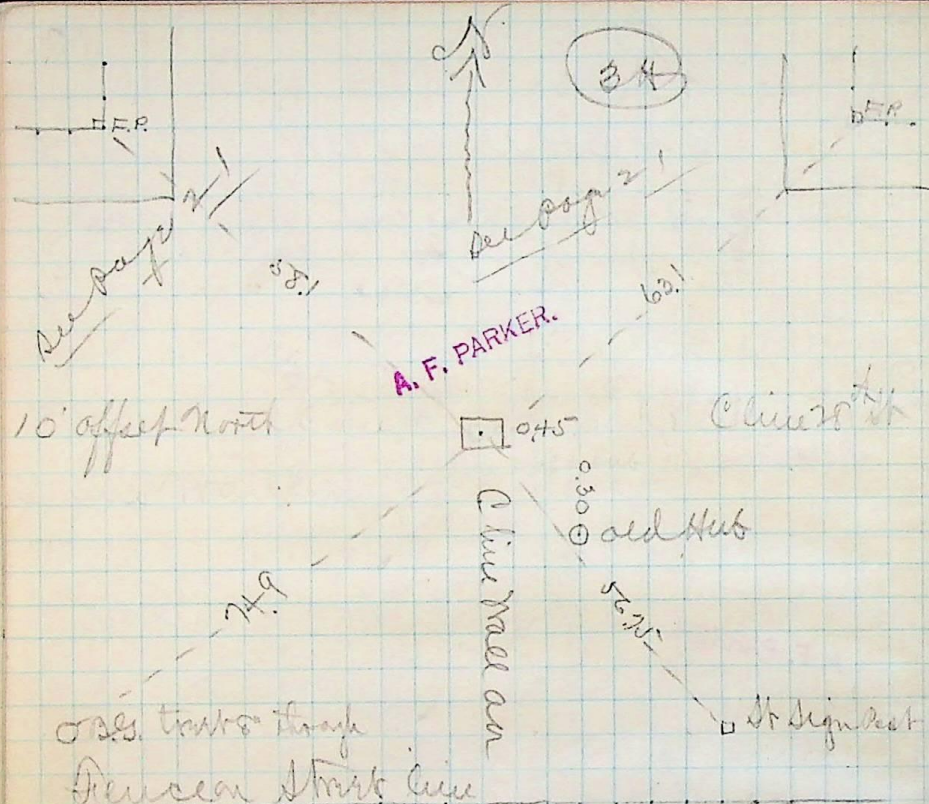 N
3H
F.P.
F.P.
See page 21
See page 21
58.1
63.1
A. F. PARKER.
10' offset North
0.45
C line 28th St
0.30
old Hub
C line Wall
74.9
56.75
St Sign Post
B.G. through
Street line